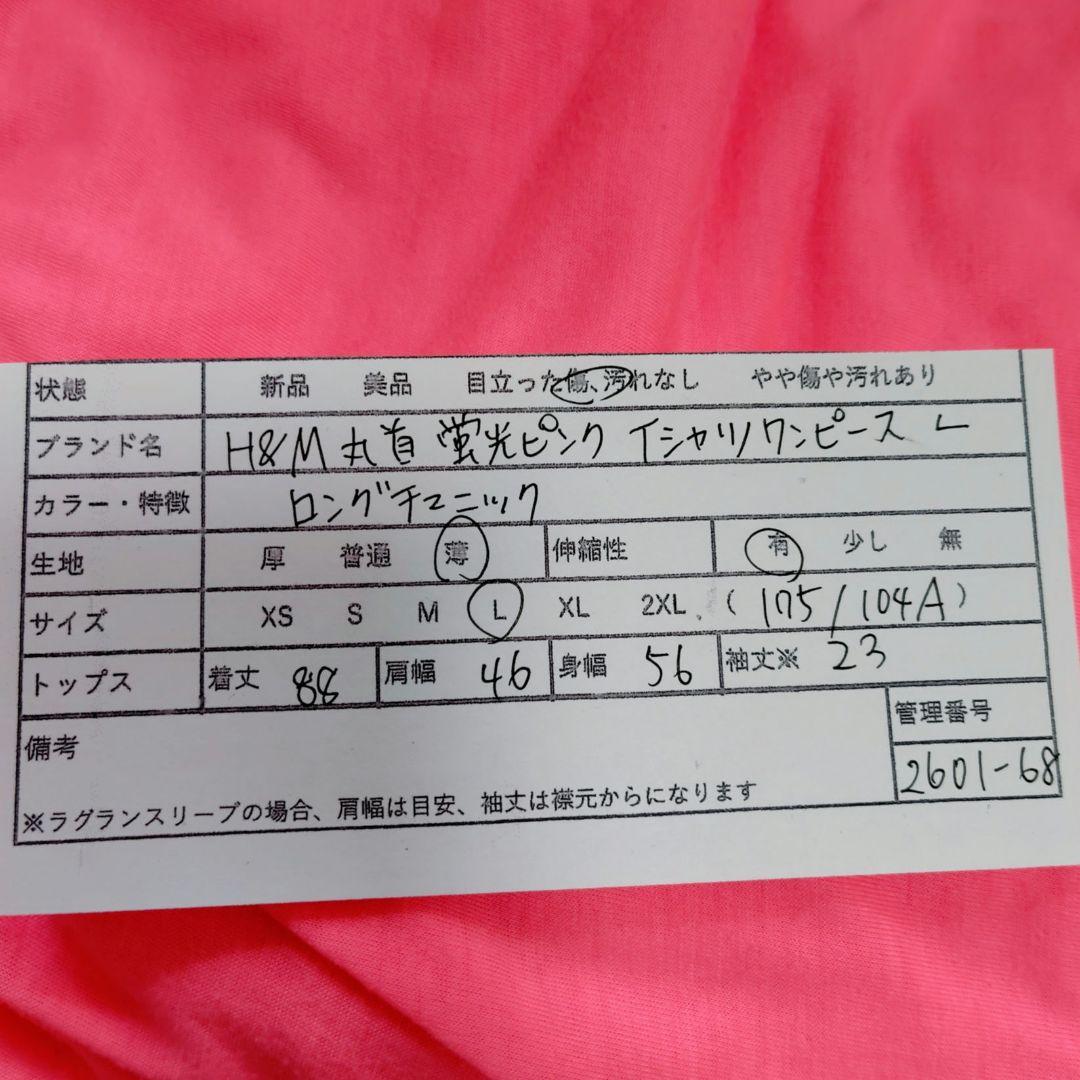 状態 新品 美品 目立った傷、汚れなし やや傷や汚れあり
ブランド名 H&M 丸首 蛍光ピンク Tシャツワンピース L
カラー・特徴 ロングチュニック
生地 厚 普通 薄 伸縮性 有 少し 無
サイズ XS S M L XL 2XL (175/104A)
トップス 着丈 88 肩幅 46 身幅 56 袖丈※ 23
備考
管理番号
2601-68
※ラグランスリーブの場合、肩幅は目安、袖丈は襟元からになります